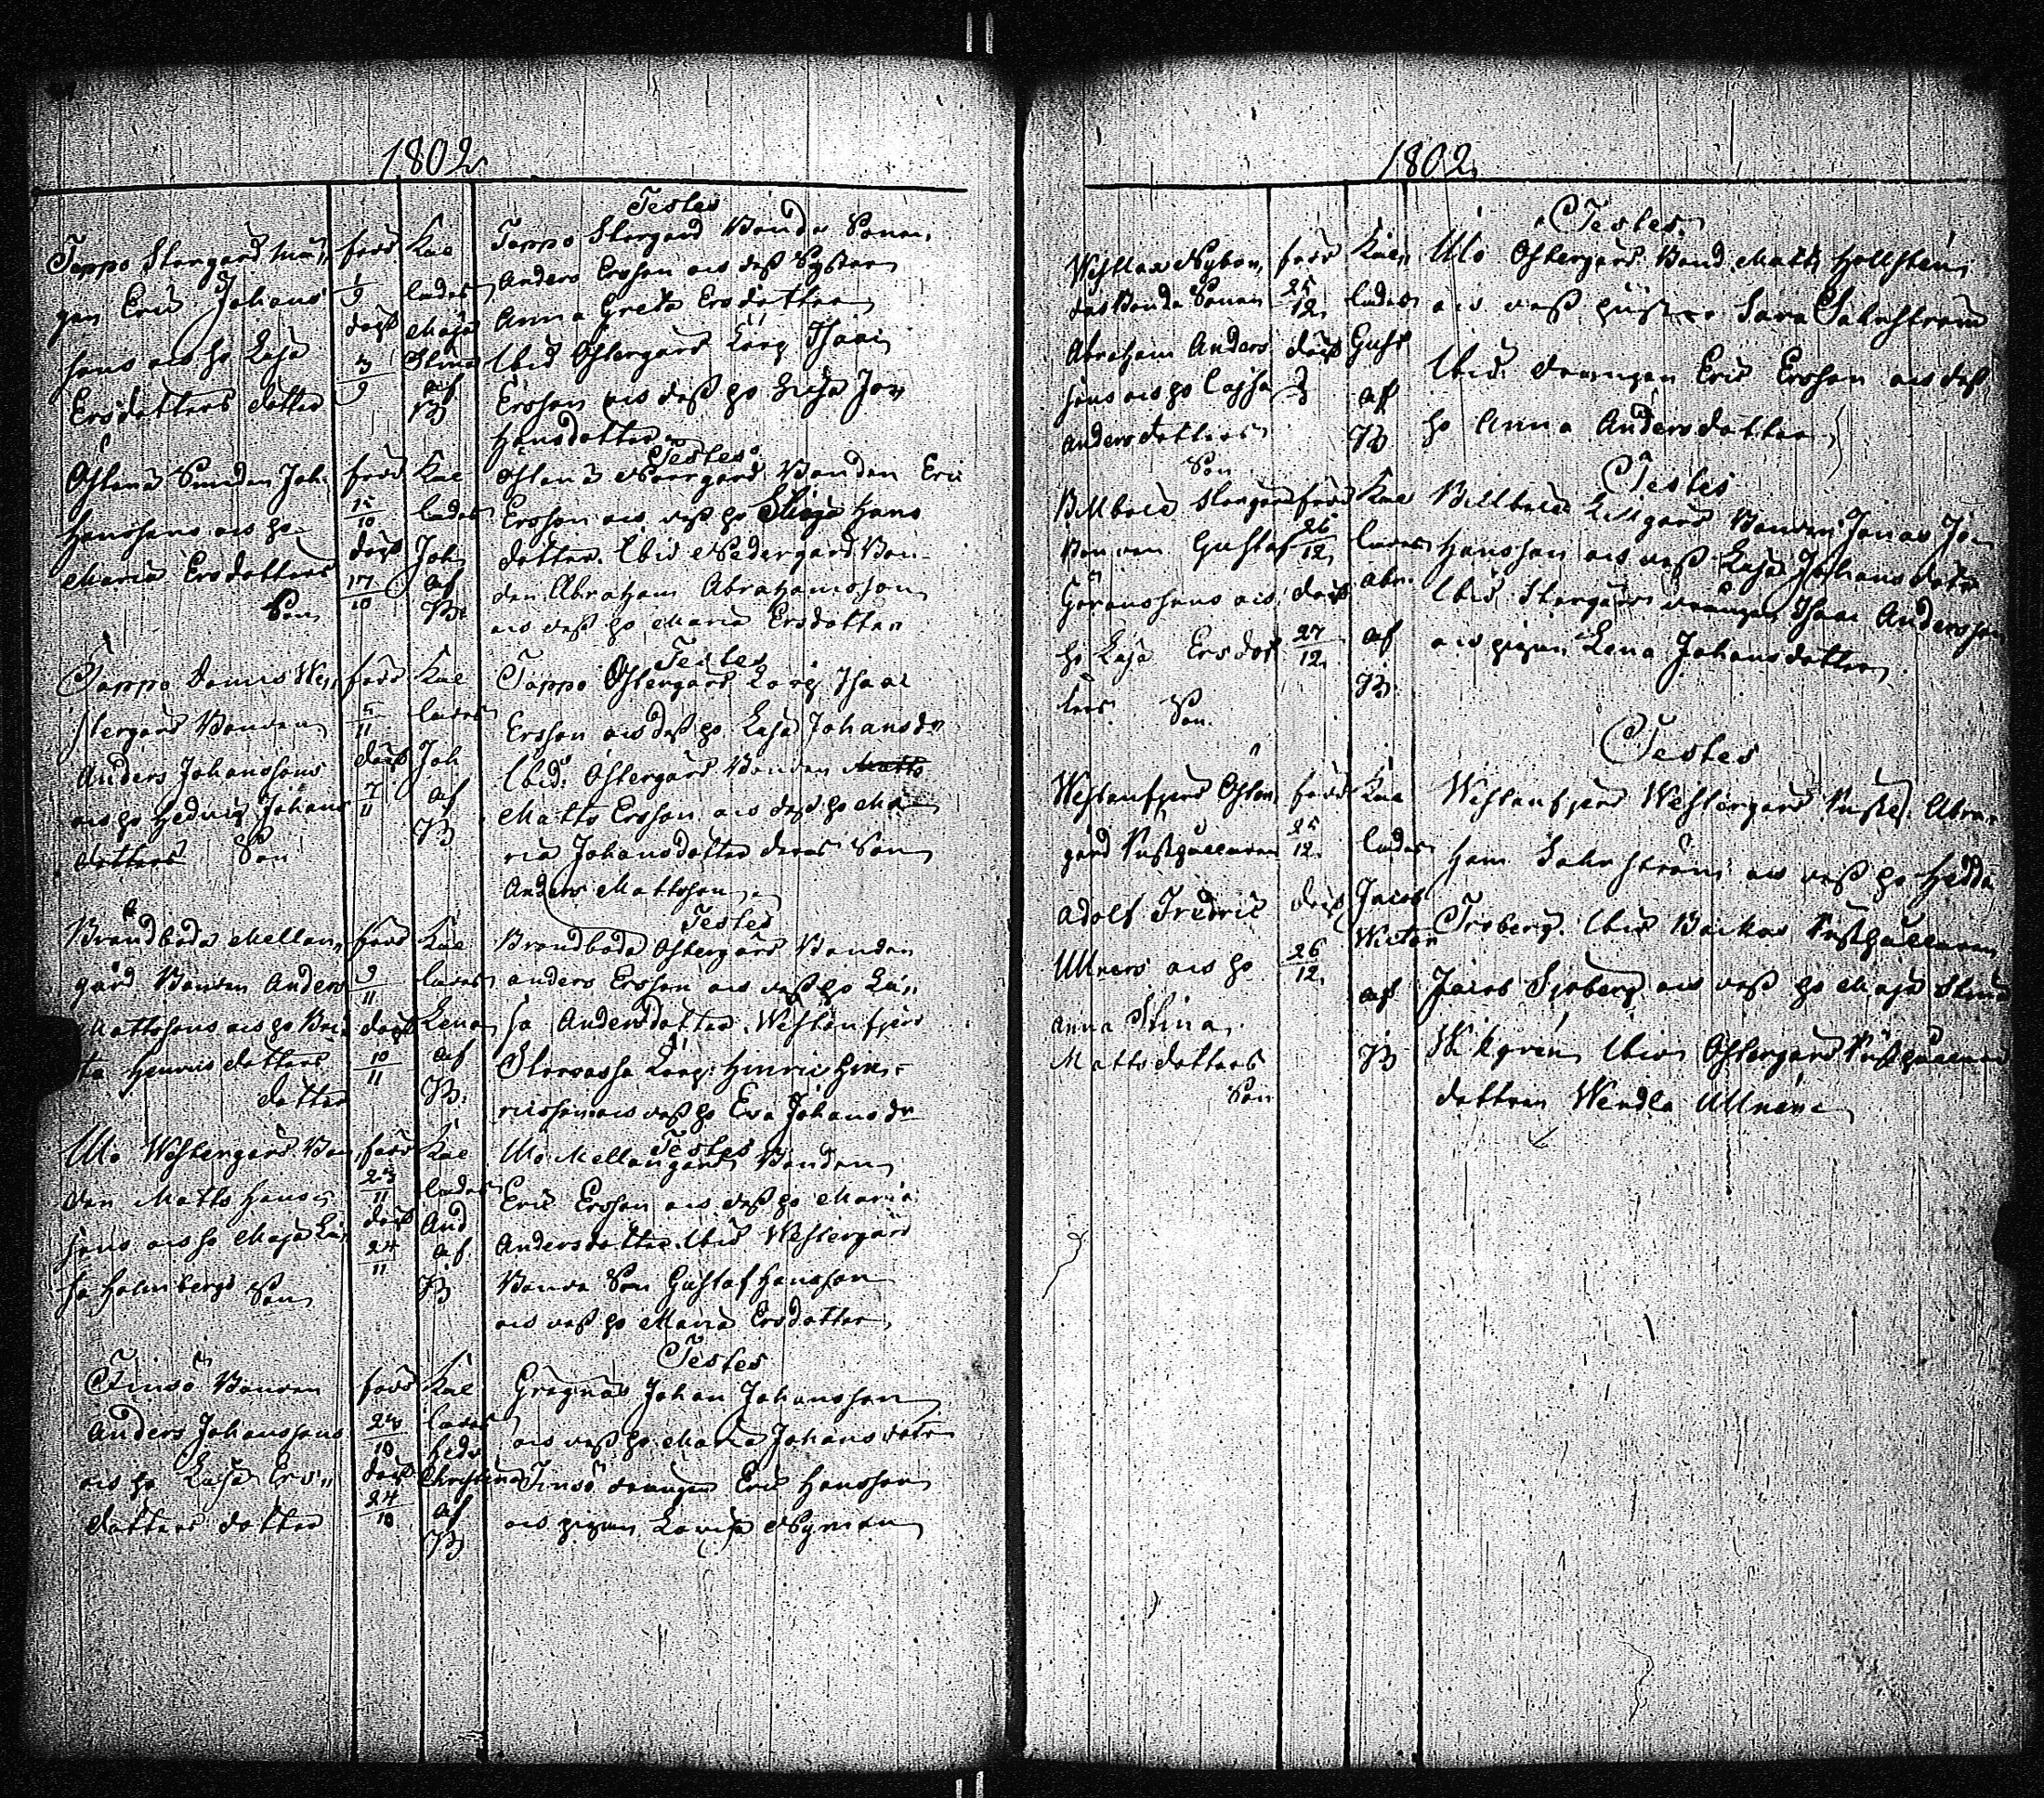 1802.
Testes
Tappo Storgård
gen Eric Johans
sons och h. Caisa
Ersdotters dotter
född
1/9
döpt
3/9
Kal
lades
Maja
Stina
af
B
Tappo Storgård Bonde Sonen
Anders Ersson och dess Syster
Anna Greta Ersdotter
Ibid Östergård Isaac
Ersson och dess h. Caisa Jo
hansdotter
Testes
Östanå Joh.
Hanssons och h.
Maria Ersdotters
Son
född
15/10
döpt
17/10
Kal
lades
Joh
af
B.
Östanå Norrgård Bonden Eric
Ersson och dess h. Hans
dotter. Ibid Nedergård Bon
den Abraham Abrahamsson
och dess h. Maria Ersdotter
Testes
Tappo Domis We
stergård Bonden
Anders Johanssons
och h. Hedvig Johans
dotters Son
född
5/11
döpt
7/11
Kal
lades
Joh
af
B
Tappo Östergård Isaac
Ersson och dess h. Caisa Johansdr
Ibid. Östergård Bonden Matts
Matts Ersson och dess h. Ma
ria Johansdotter deras Son
Anders Mattsson
Testes
Brändboda Mellan
gård Bonden Anders
Mattssons och h. Bri
ta Henricsdotters
dotter
född
9/11
döpt
10/11
Kal
lades
Lena
af
B.
Brändboda Östergård Bonden
Anders Ersson och dess h. Cai
sa Andersdotter. Westanfjerd
Hinric Hin
ricsson och dess h. Eva Johansdr
Testes
Mo Westergård Bon
den Matts Hans
sons och h. Maja Cai
sa Holmbergs Son
född
23/11
döpt
24/11
Kal
lades
And
af
B
Mo Mellangård Bonden
Eric Ersson och dess h. Maria
Andersdotter. Ibid Westergård
Bonde Son Gustaf Hansson
och dess h. Maria Ersdotter
Testes
Finsö Bonden
Anders Johanssons
och h. Caisa Ers
dotters dotter
född
döpt
24/10
Kal
lades
Hedv
Christina
af
B
Johan Johansson
och dess h. Maria Johansdotr
Finsö drängen Eric Hansson
och pigan Lovisa Nyman
1802.
Testes
das Bonde Sonen
Abraham Anders
sons och h. Cajsa
Andersdotters
Son
född
25/12
döpt
Kal
lades
Gust
af
B
Mo Östergård Bond. Matts Hollsten
och dess hustru Sara Sahlström
Ibid. drängen Eric Ersson och dess
h. Anna Andersdotter
Testes
Billböle Storgård
Bonden Gustaf
Göranssons och
h. Caja Ersdot
ters Son.
född
26/12
döpt
27/12
Kal
lades
Abr.
af
B.
Billböle Lillgård Bonden Jonas Jo
hansson och dess Caisa Johansdotr
Ibid Storgård drängen Isaac Andersson
och pigan Lena Johansdotter
Testes
Westanfjerd Östan
gård
Adolf Fredric
Ullners och h.
Anna Stina
Mattsdotters
Son
född
25/12
döpt
26/12
Kal
lades
Jacob
Wictor
af
B
Westanfjerd Westergård Abra
ham Sahlström och dess h. Hedda
Froberg. Ibid
Jacob Sjöberg och dess h. Maja Stina
Wikgren Ibid Östergård
dottren Wendla Ullner